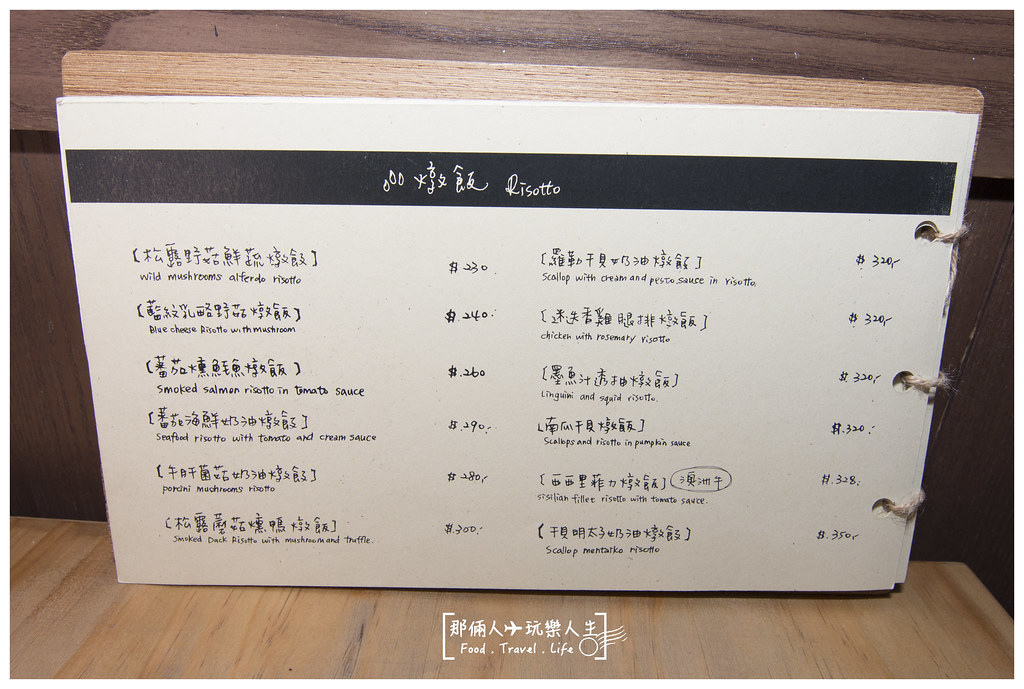 燉飯 Risotto
[松露野菇鮮蔬燉飯] $230.
wild mushrooms alferdo risotto
[藍紋乳酪野菇燉飯] $.240.-
Blue cheese Risotto with mushroom
[蕃茄燻鮭魚燉飯] $.260
Smoked salmon risotto in tomato sauce
[蕃茄海鮮奶油燉飯] $.290.-
Seafood risotto with tomato and cream sauce
[牛肝菌菇奶油燉飯] $280.-
porcini mushrooms risotto
[松露蘑菇燻鴨燉飯] $.300.-
Smoked Duck Risotto with mushroom and truffle.
[羅勒干貝奶油燉飯] $320.-
Scallop with cream and pesto sauce in risotto.
[迷迭香雞腿排燉飯] $320.-
chicken with rosemary risotto
[墨魚汁透抽燉飯] $320.-
Linguini and squid risotto.
[南瓜干貝燉飯] $.320.-
Scallops and risotto in pumpkin sauce
[西西里菲力燉飯] 澳洲牛 $.328.
sisilian fillet risotto with tomato sauce.
[干貝明太子奶油燉飯] $.350.-
Scallop mentaiko risotto
那倆人✈玩樂人生
Food . Travel . Life